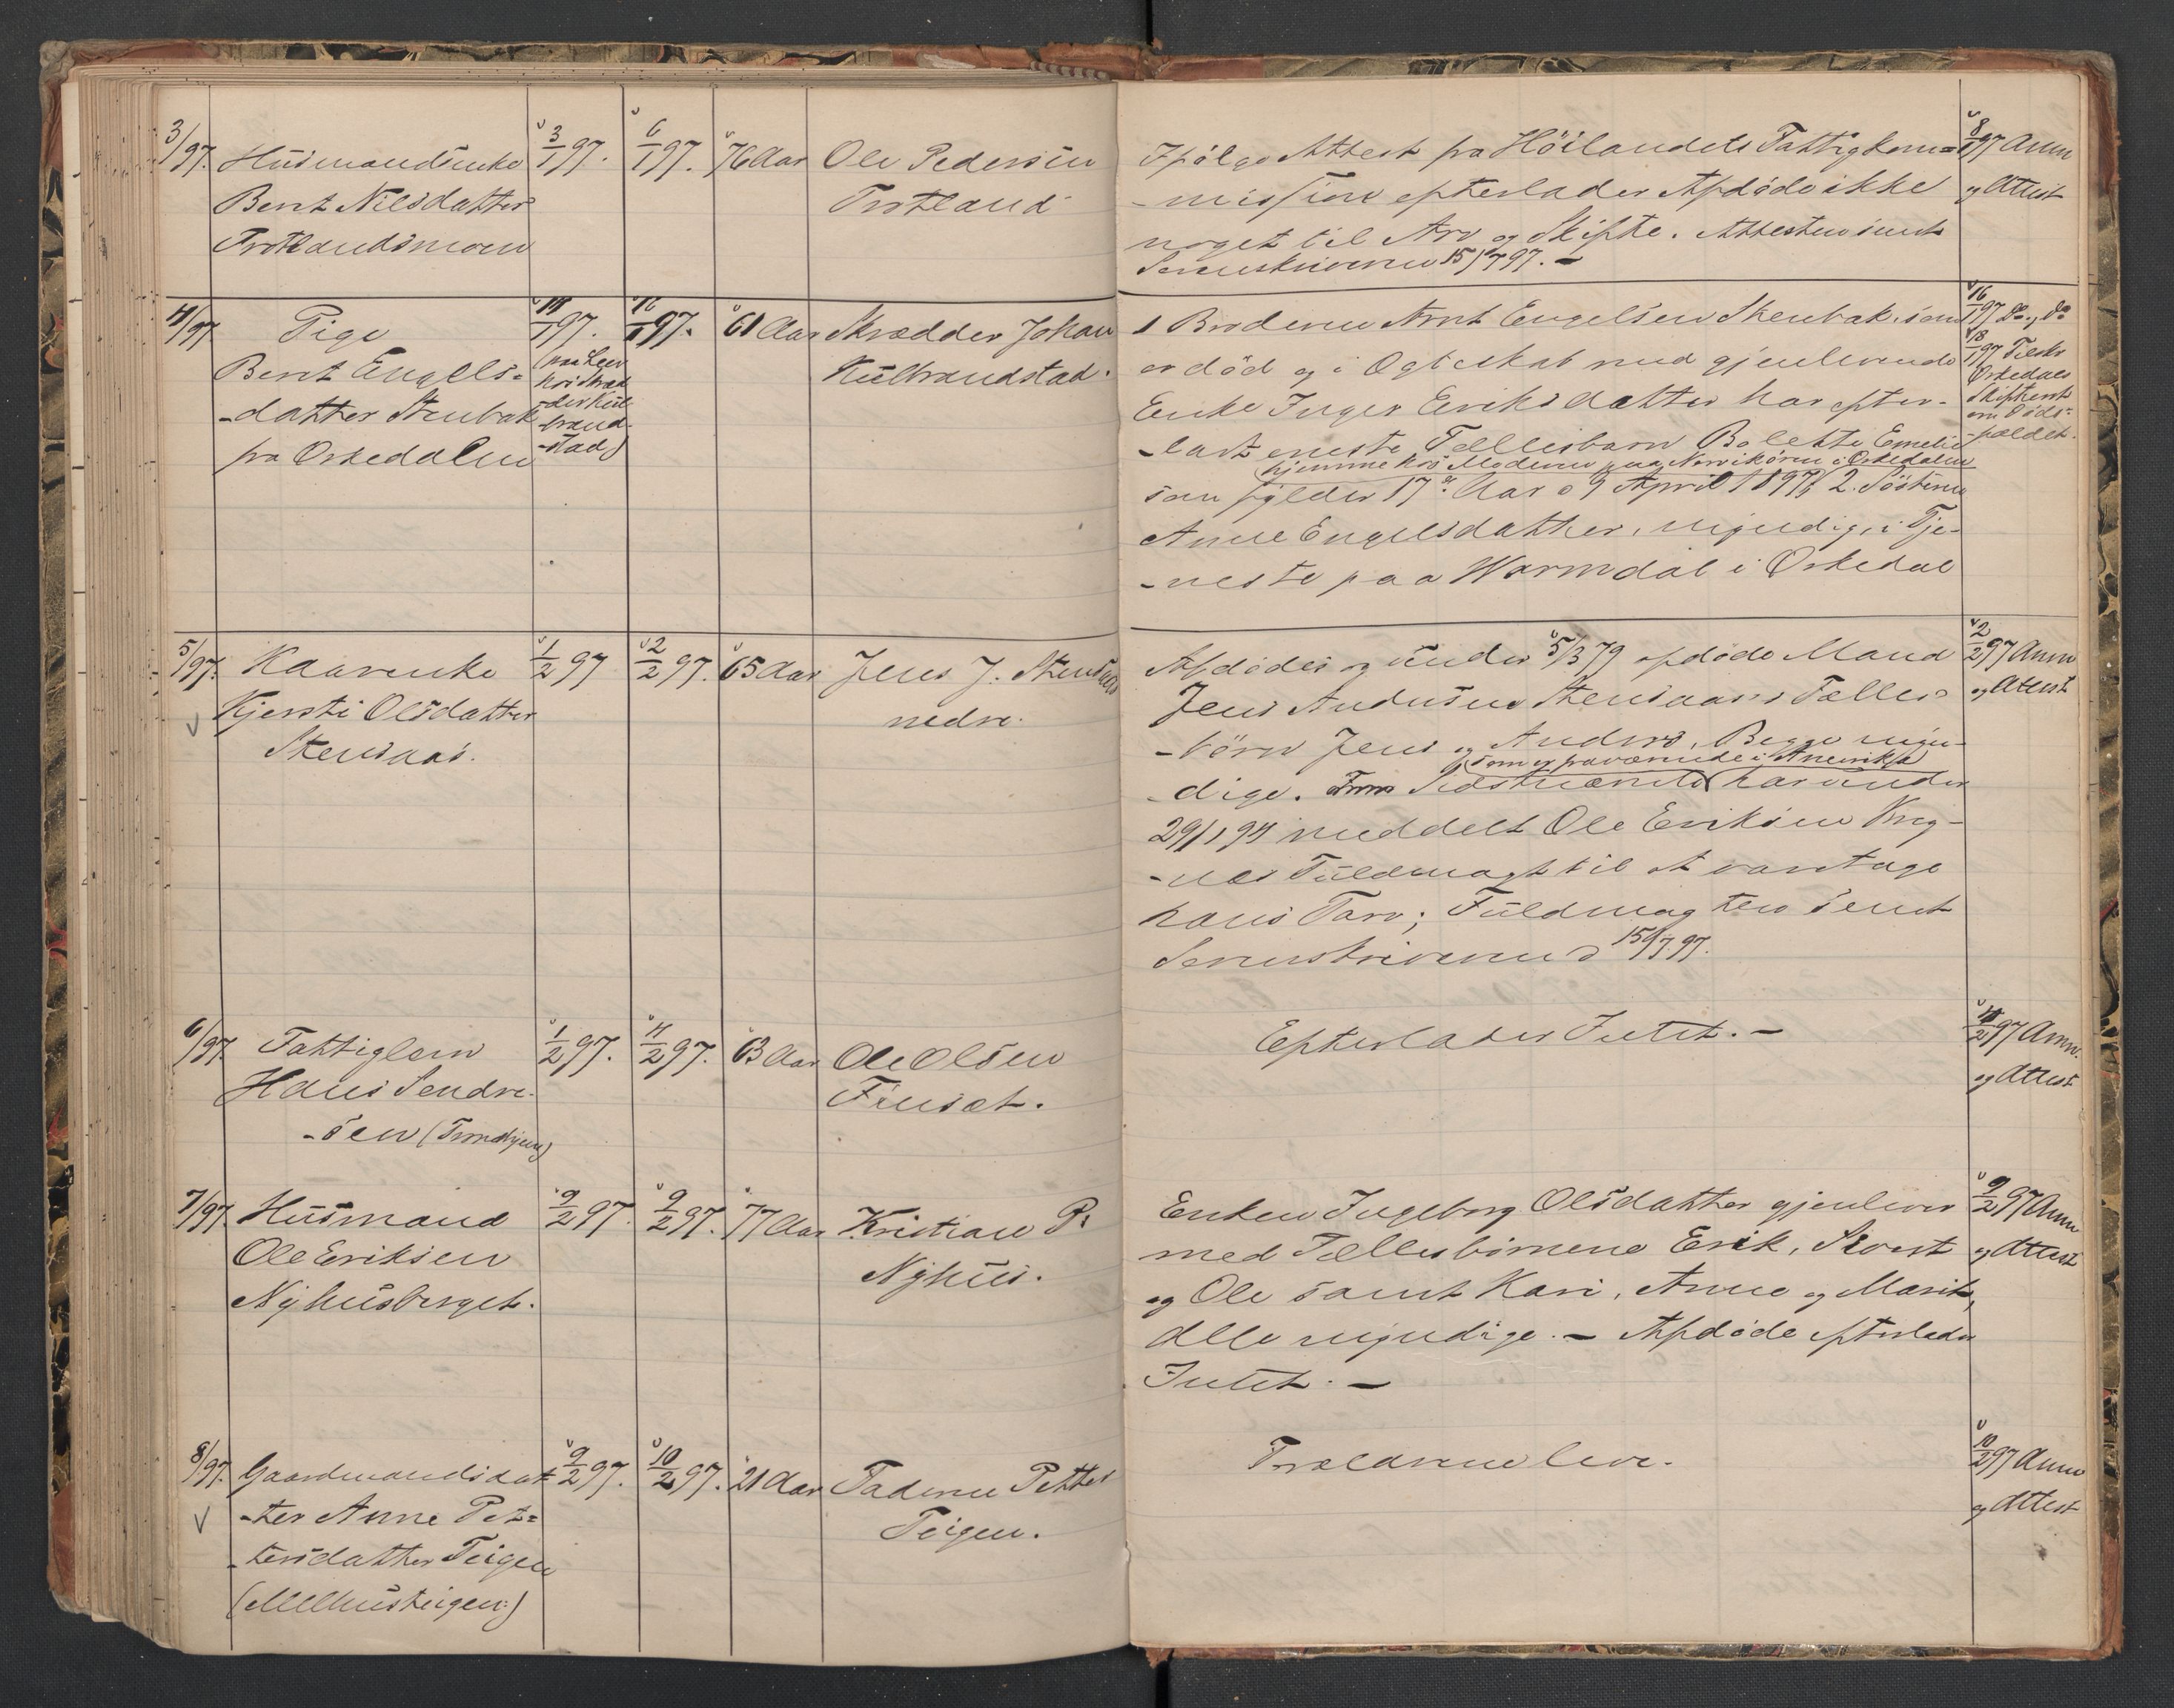 3/97. Husmandsenke 3/1 97. 6/1 97. 76 Aar Ole Pedersen
Bent Nilsdatter Trotland
Trotlandsmoen
Ifølge Attest fra Höilandets Fattigkom= 8/1 97 Anm
-mission efterlader Afdøde ikke og Attest
noget til Arv og Skifte. Attesten sendt
Sorenskriveren 15/7 97. –
4/97 Pige 14/1 97. 16/1 97. 61 Aar Skrædder Johan
Bent Engels= (paa
hos Skræd
-datter Stenbak -der Kul
brand-
fra Orkedalen -stad)
Kulbrandstad.
1 Broderen Arnt Engelsen Stenbak, som 16/1 97 Do. og Do
er død og i Ægteskab med gjenlevende 18/1 97 Tilskr
Enke Inger Eriksdatter har efter- Orkedals
-ladt eneste Fællesbarn Bolette Emelie Skifteret
om Døds-
-faldet.
hjemme hos Moderen paa i Orkedalen
som fylder 17 Aar 9 April 1897, 2. Søsteren
Anne Engelsdatter, myndig, i Tje-
-neste paa Warmdal i Orkedal
5/97. Kaarenke 1/2 97 2/2 97. 65 Aar Jens J. Stensaas
Kjersti Olsdatter nedre.
Stensaas.
Afdødes og under 5/3 79 afdøde Mand 2/2 97 Anm
Jens Andersen Stensaas's Fælles- og Attest
-børn Jens og Anders, Begge myn-
(som er fraværende i Amerika)
-dige. Sidstnævnte har under
29/1 94 meddelt Ole Eriksen Kreg-
-nes Fuldmagt til at varetage
hans Tarv; Fuldmagten sendt
Sorenskriveren 15/7 97.
6/97 Fattiglem 1/2 97. 4/2 97. 63 Aar Ole Olsen
Hans Sendre- Finsæt.
-sen (Trondhjem)
Efterlader Intet. – 4/2 97 Anm.
og Attest
7/97 Husmand 9/2 97. 9/2 97. 77 Aar Kristian P.
Ole Eriksen Nyhus.
Nyhusberget.
Enken Ingeborg Olsdatter gjenlever 9/2 97 Anm
med Fællesbørnene Erik, Sivert og Attest
og Ole samt Kari, Anne og Marit,
Alle myndige. – Afdøde efterlader
Intet. –
8/97. Gaardmandsdat- 9/2 97. 10/2 97. 21 Aar Faderen Petter
-ter Anne Pet= Teigen.
-tersdatter Teigen
(Melhusteigen)
Forældrene leve. 10/2 97 Anm
og Attest